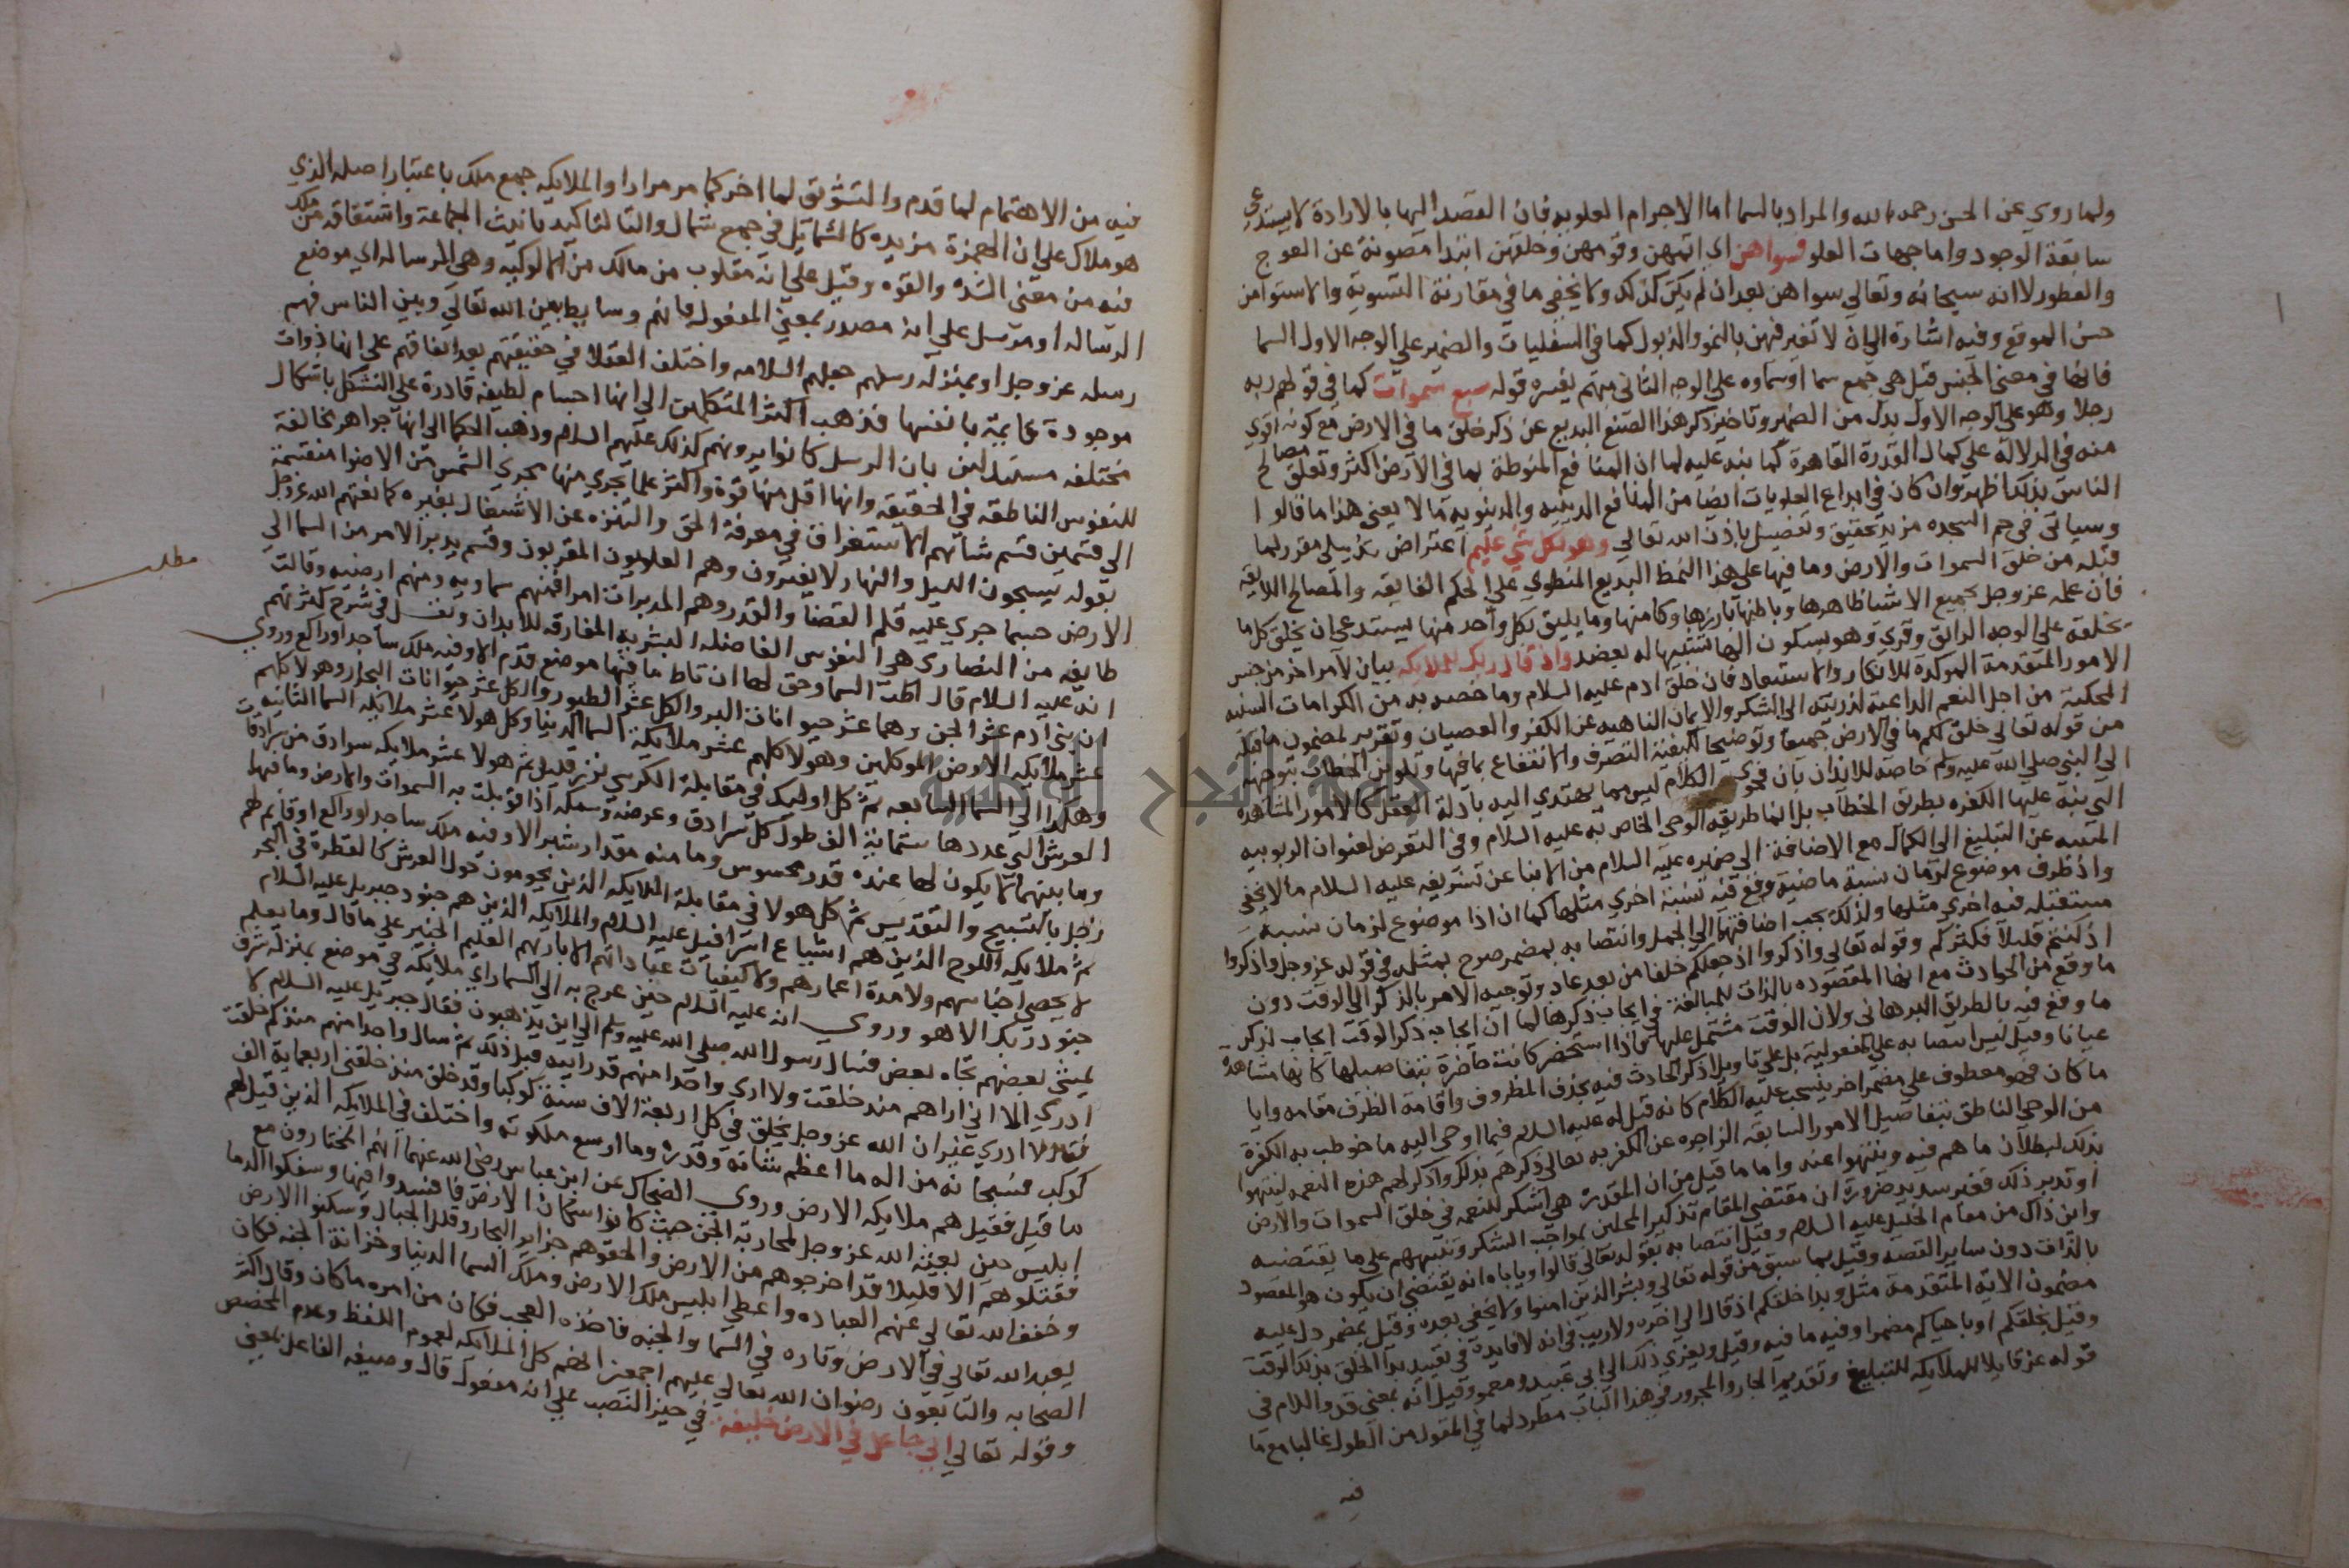 ولما روي عن الحسن رحمه الله والمراد بالسما اما الاجرام العلويه فان القصد اليها بالارادة لا يستدعي
سابقة الوجود واما جهات العلو فسواهن اي اتمهن وقومهن وخلقهن ابتدا مصونة عن العوج
والفطور لا انه سبحانه وتعالي سواهن بعد ان لم يكن كذلك ولا يخفي ما في مقارنة التسوية والاستوا من
حسن الموقع وفيه اشارة الي ان لا تغير فيهن بالنمو والذبول كما في السفليات والضمير علي الوجه الاول السما
فانها في معني الجنس قيل هي جمع سماة او سماوه وعلي الوجه الثاني مبهم يفسره قوله سبع سموات كما في قولهم ربه
رجلا وهو علي الوجه الاول بدل من الضمير وتاخير ذكر هذا الصنع البديع عن ذكر خلق ما في الارض مع كونه اقوي
منه في الدلالة علي كمال القدرة القاهرة كما نبه عليه لما ان المنافع المنوطة بما في الارض اكثر وتعلق مصالح
الناس بذلك اظهر وان كان في ابداع العلويات ايضا من المنافع الدينيه والدنيويه ما لا يخفي هذا ما قالوا
وسياتي في حم السجده مزيد تحقيق وتفصيل باذن الله تعالي وهو بكل شي عليم اعتراض تذييلي مقرر لما
قبله من خلق السموات والارض وما فيها علي هذا النمط البديع المنطوي علي الحكم الفايقه والمصالح اللايقه
فان علمه عز وجل بجميع الاشيا ظاهرها وباطنها بارزها وكامنها وما يليق بكل واحد منها يستدعي ان يخلق كل ما
يخلقه علي الوجه الرائق وقري وهو بسكون الها تشبيها له بعضد واذ قال ربك للملايكه بيان لامر اخر من جنس
الامور المتقدمة الموكدة للانكار والاستبعاد فان خلق ادم عليه السلام وما خصه به من الكرامات السنيه
المحكية من اجل النعم الداعية لذريته الي الشكر والايمان الناهيه عن الكفر والعصيان وتقرير لمضمون ما قبله
من قوله تعالي خلق لكم ما في الارض جميعا وتوضيح لكيفية التصرف والانتفاع بما فيها وتلوين الخطاب بتوجيهه
الي النبي صلي الله عليه وسلم خاصه للايذان بان فحوي الكلام ليس مما يهتدي اليه بادلة العقل كالامور المشاهده
التي نبه عليها الكفره بطريق الخطاب بل انما طريقه الوحي الخاص به عليه السلام وفي التعرض لعنوان الربوبيه
المنبيه عن التبليغ الي الكمال مع الاضافة الي ضميره عليه السلام من الانبا عن تشريفه عليه السلام ما لا يخفي
واذ ظرف موضوع لزمان نسبة ماضية وقع فيه نسبة اخري مثلها كما ان اذا موضوع لزمان نسبة
مستقبله فيه اخري مثلها ولذلك يجب اضافتهما الي الجمل وانتصابه بمضمر صرح بمثله في قوله عز وجل واذكروا
اذ كنتم قليلا فكثركم وقوله تعالي واذكروا اذ جعلكم خلفا من بعد عاد وتوجيه الامر بالذكر الي الوقت دون
ما وقع من الحوادث مع انها المقصوده بالذات للمبالغة في ايجاب ذكرها لما ان ايجاب ذكر الوقت ايجاب لذكر
ما وقع فيه بالطريق البرهاني ولان الوقت مشتمل عليها فاذا استحضر كانت حاضرة بتفاصيلها كانها مشاهدة
عيانا وقيل ليس انتصابه علي المفعولية بل علي تاويل اذكر الحادث فيه بحذف المظروف واقامة الظرف مقامه وايا
ما كان فهو معطوف علي مضمر اخر ينسحب عليه الكلام كانه قيل له عليه السلام فيما اوحي اليه ما خوطب به الكفرة
من الوحي الناطق بتفاصيل الامور السابقه الزاجره عن الكفر به تعالي ذكرهم بذلك واذكر لهم هذه النعمه لينتهوا
بذلك لبطلان ما هم فيه وينتهوا عنه واما ما قيل من ان المقدر هو اشكر للنعمه في خلق السموات والارض
او تدبر ذلك فغير سديد ضرورة ان مقتضي المقام تذكير المخلين بمواجب الشكر وتنبيههم علي ما يقتضيه
واين ذاك من مقام الخليل عليه السلام وقيل انتصابه بقوله تعالي قالوا وياباه انه يقتضي ان يكون هو المقصود
بالذات دون ساير القصه وقيل بما سبق من قوله تعالي وبشر الذين امنوا ولا يخفي بعده وقيل بمضمر دل عليه
مضمون الايه المتقدمة مثل وبدا خلقكم اذ قال الي اخره ولا ريب في انه لا فايدة في تقييد بدا الخلق بذلك الوقت
وقيل بخلقكم او باحياكم مضمرا وفيه ما فيه وقيل ويعزي ذلك الي ابي عبيد ومعمر وقيل انه بمعني قد واللام في
قوله عز قايلا للملايكه للتبليغ وتقديم الجار والمجرور في هذا الباب مطرد لما في المقول من الطول غالبا مع ما
فيه
فيه من الاهتمام لما قدم والتشويق لما اخر كما مر مرارا والملايكه جمع ملك باعتبار اصله الذي
هو ملاك علي ان الهمزة مزيده كالشمايل في جمع شمال والتا لتاكيد تانيث الجماعة واشتقاقه من ملك
فيه من معني الشدة والقوه وقيل علي انه مقلوب من مالك من الالوكه وهي الرساله اي موضع
الرساله او مرسل علي انه مصدر بمعني المفعول فانهم وسايط بين الله تعالي وبين الناس فهم
رسله عز وجل او بمنزلة رسلهم عليهم السلام واختلف العقلا في حقيقتهم بعد اتفاقهم علي انها ذوات
موجودة قايمة بانفسها فذهب اكثر المتكلمين الي انها اجسام لطيفه قادرة علي التشكل باشكال
مختلفه مستدلين بان الرسل كانوا يرونهم كذلك عليهم السلام وذهب الحكما الي انها جواهر مخالفة
للنفوس الناطقه في الحقيقه وانها اقل منها قوة واكثر علما تجري منها مجري الشمس من الاضوا منقسمة
الي قسمين قسم شانهم الاستغراق في معرفة الحق والتنزه عن الاشتغال بغيره كما نعتهم الله عز وجل
بقوله يسبحون الليل والنهار لا يفترون وهم العليون المقربون وقسم يدبر الامر من السما الي
الارض حسبما جري عليه قلم القضا والقدر وهم المدبرات امرا فمنهم سماويه ومنهم ارضيه وقالت
طايفه من النصاري هي النفوس الفاضله البشريه المفارقه للابدان ونقل في شرح كثرتهم
انه عليه السلام قال اطت السما وحق لها ان تاط ما فيها موضع قدم الا وفيه ملك ساجد او راكع وروي
ان بني ادم عشر الجن وهما عشر حيوانات البر والكل عشر الطيور والكل عشر حيوانات البحار وهولا كلهم
عشر ملايكه الارض الموكلين وهولا كلهم عشر ملايكة السما الدنيا وكل هولا عشر ملايكه السما الثانيه
وهكذا الي السما السابعه ثم كل اوليك في مقابلة الكرسي نزر قليل ثم هولا عشر ملايكه سرادق من سرادقات
العرش التي عددها ستماية الف طول كل سرادق وعرضه وسمكه اذا قوبلت به السموات والارض وما فيهما
وما بينهما لا يكون لها عنده قدر محسوس وما منه مقدار شبر الا وفيه ملك ساجد او راكع او قايم لهم
زجل بالتسبيح والتقديس ثم كل هولا في مقابلة الملايكه الذين يحومون حول العرش كالقطرة في البحر
ثم ملايكه اللوح الذين هم اشياع اسرافيل عليه السلام والملايكه الذين هم جنود جبريل عليه السلام
لا يحصي اجناسهم ولا مدة اعمارهم ولا كيفيات عباداتهم الا باريهم العليم الخبير علي ما قال وما يعلم
جنود ربك الا هو وروي انه عليه السلام حين عرج به الي السما راي ملايكه في موضع بمنزلة شرف
يمشي بعضهم تجاه بعض فسال رسول الله صلي الله عليه وسلم الي اين يذهبون فقال جبريل عليه السلام لا
ادري الا اني اراهم منذ خلقت ولا اري واحدا منهم قد رايته قبل ذلك ثم سال واحدا منهم منذ كم خلقت
فقال لا ادري غير ان الله عز وجل يخلق في كل اربعة الاف سنة كوكبا وقد خلق منذ خلقني اربعماية الف
كوكب فسبحانه من اله ما اعظم شانه وقدره وما اوسع ملكوته واختلف في الملايكه الذين قيل لهم
ما قيل فقيل هم ملايكه الارض وروي الضحاك عن ابن عباس رضي الله عنهما انهم المختارون مع
ابليس حين بعثه الله عز وجل لمحاربة الجن حيث كانوا سكان الارض فافسدوا فيها وسفكوا الدما
فقتلوهم الا قليلا قد اخرجوهم من الارض والحقوهم جزاير البحار وقلل الجبال وسكنوا الارض
وخفف الله تعالي عنهم العباده واعطي ابليس ملك الارض وملك السما الدنيا وخزانة الجنه فكان
يعبد الله تعالي في الارض وتاره في السما والجنه فاخذه العجب فكان من امره ما كان وقال اكثر
الصحابه والتابعون رضوان الله تعالي عليهم اجمعين انهم كل الملايكه لعموم اللفظ وعدم المخصص
وقوله تعالي اني جاعل في الارض خليفه في حيز النصب علي انه مفعول قال وصيغه الفاعل بمعني
مطلب
جامعة النجاح الوطنية